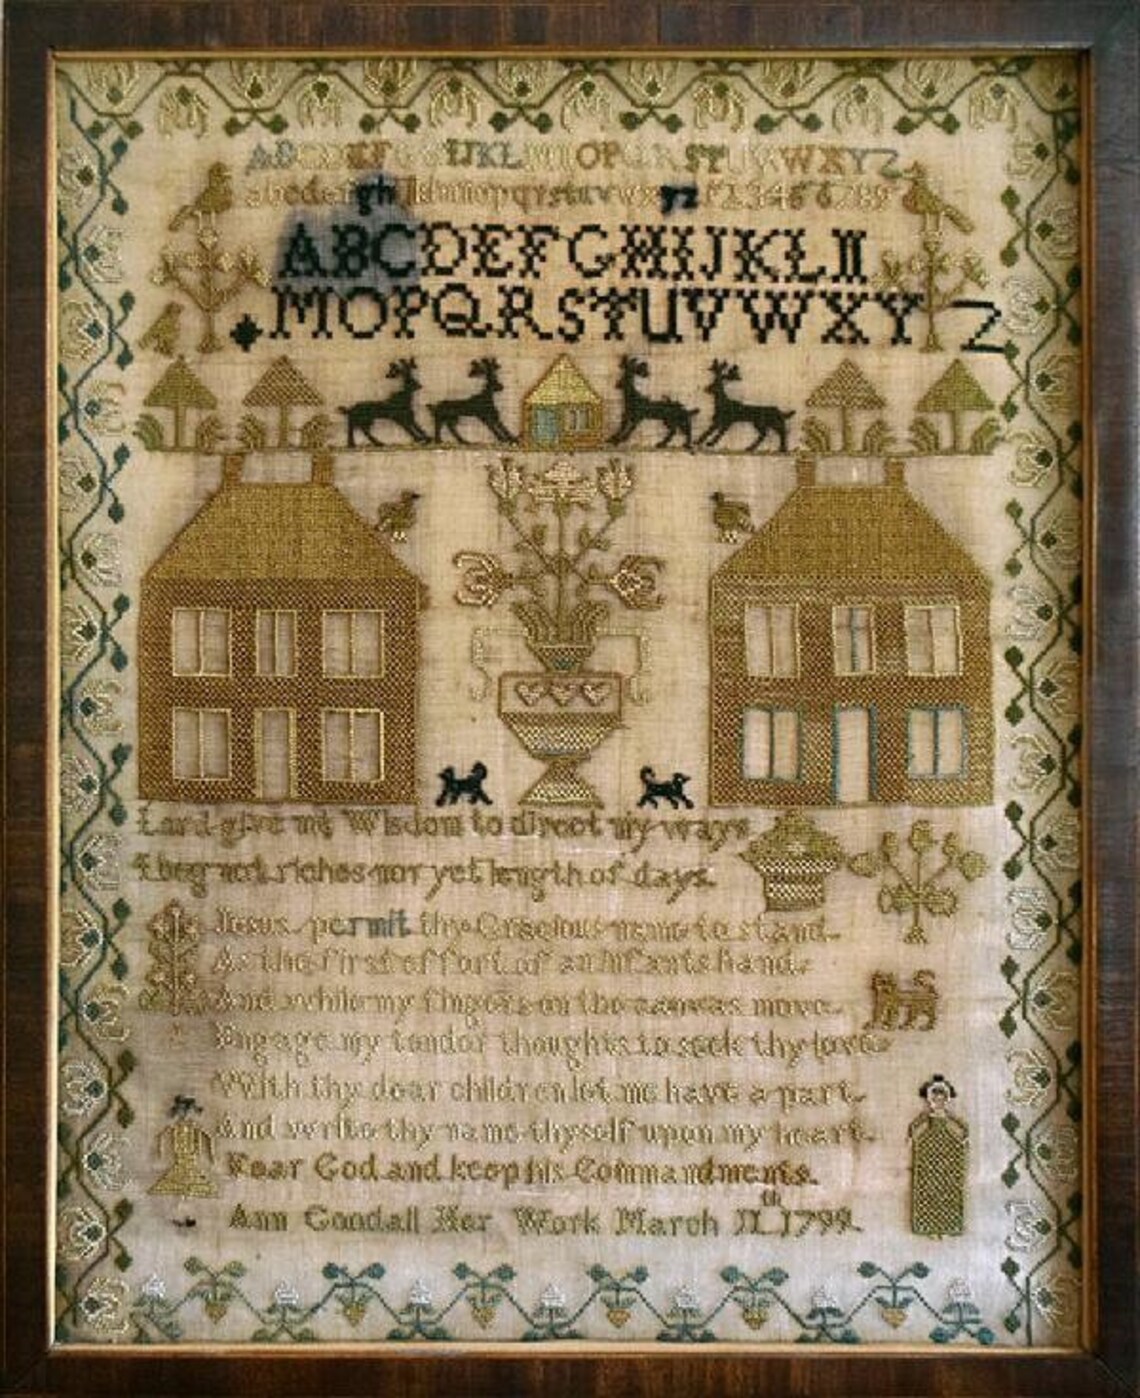 ABCDEFGHIJKLMNOPQRSTUVWXYZ
abcdefghiklmnopqrstuvwxyz 123456789
ABCDEFGHIJKLM
NOPQRSTUVWXYZ
Lard give me Wisdom to direct my ways
I beg not riches nor yet length of days.
Jesus permit thy Gracious name to stand
As the first effort of an Infants hand
And while my fingers on the canvas move
Engage my tender thoughts to seek thy love
With thy dear children let me have a part
And write thy name thyself upon my heart
Fear God and keep his Commandments.
Ann Goodall Her Work March 11th 1799